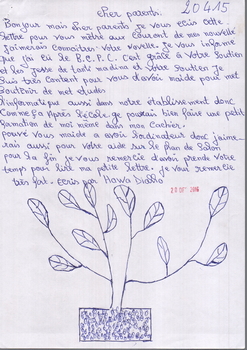 20415
cher parents.
Bonjour mais cher parents je vous ecris cette
lettre pour vous mêtre aux courant de mes nouvelle
j'aimerais connaitres votre nouvelle. je vous informe
que j'ai eu le B.E.P.C. c'est grâce a votre soutien
et les de votre soutien je
suis tres content pour vous d'avoir m'aide pour met
soutenir de met etudes
d'informatique aussi dans notre etablissement donc
comme ça Après l'école. je pourrais bien faire une petit
formation de moi même dans mon
pouvé vous m'aide a avoir l'ordinateur donc j'aime
rais aussi pour votre aide sur le plan de
pour la fin je vous remercie d'avoir prende votre
temps pour lire ma petite lettre. je vous remercie
très fort. ecris par Hawa Diallo
20 OCT 2016